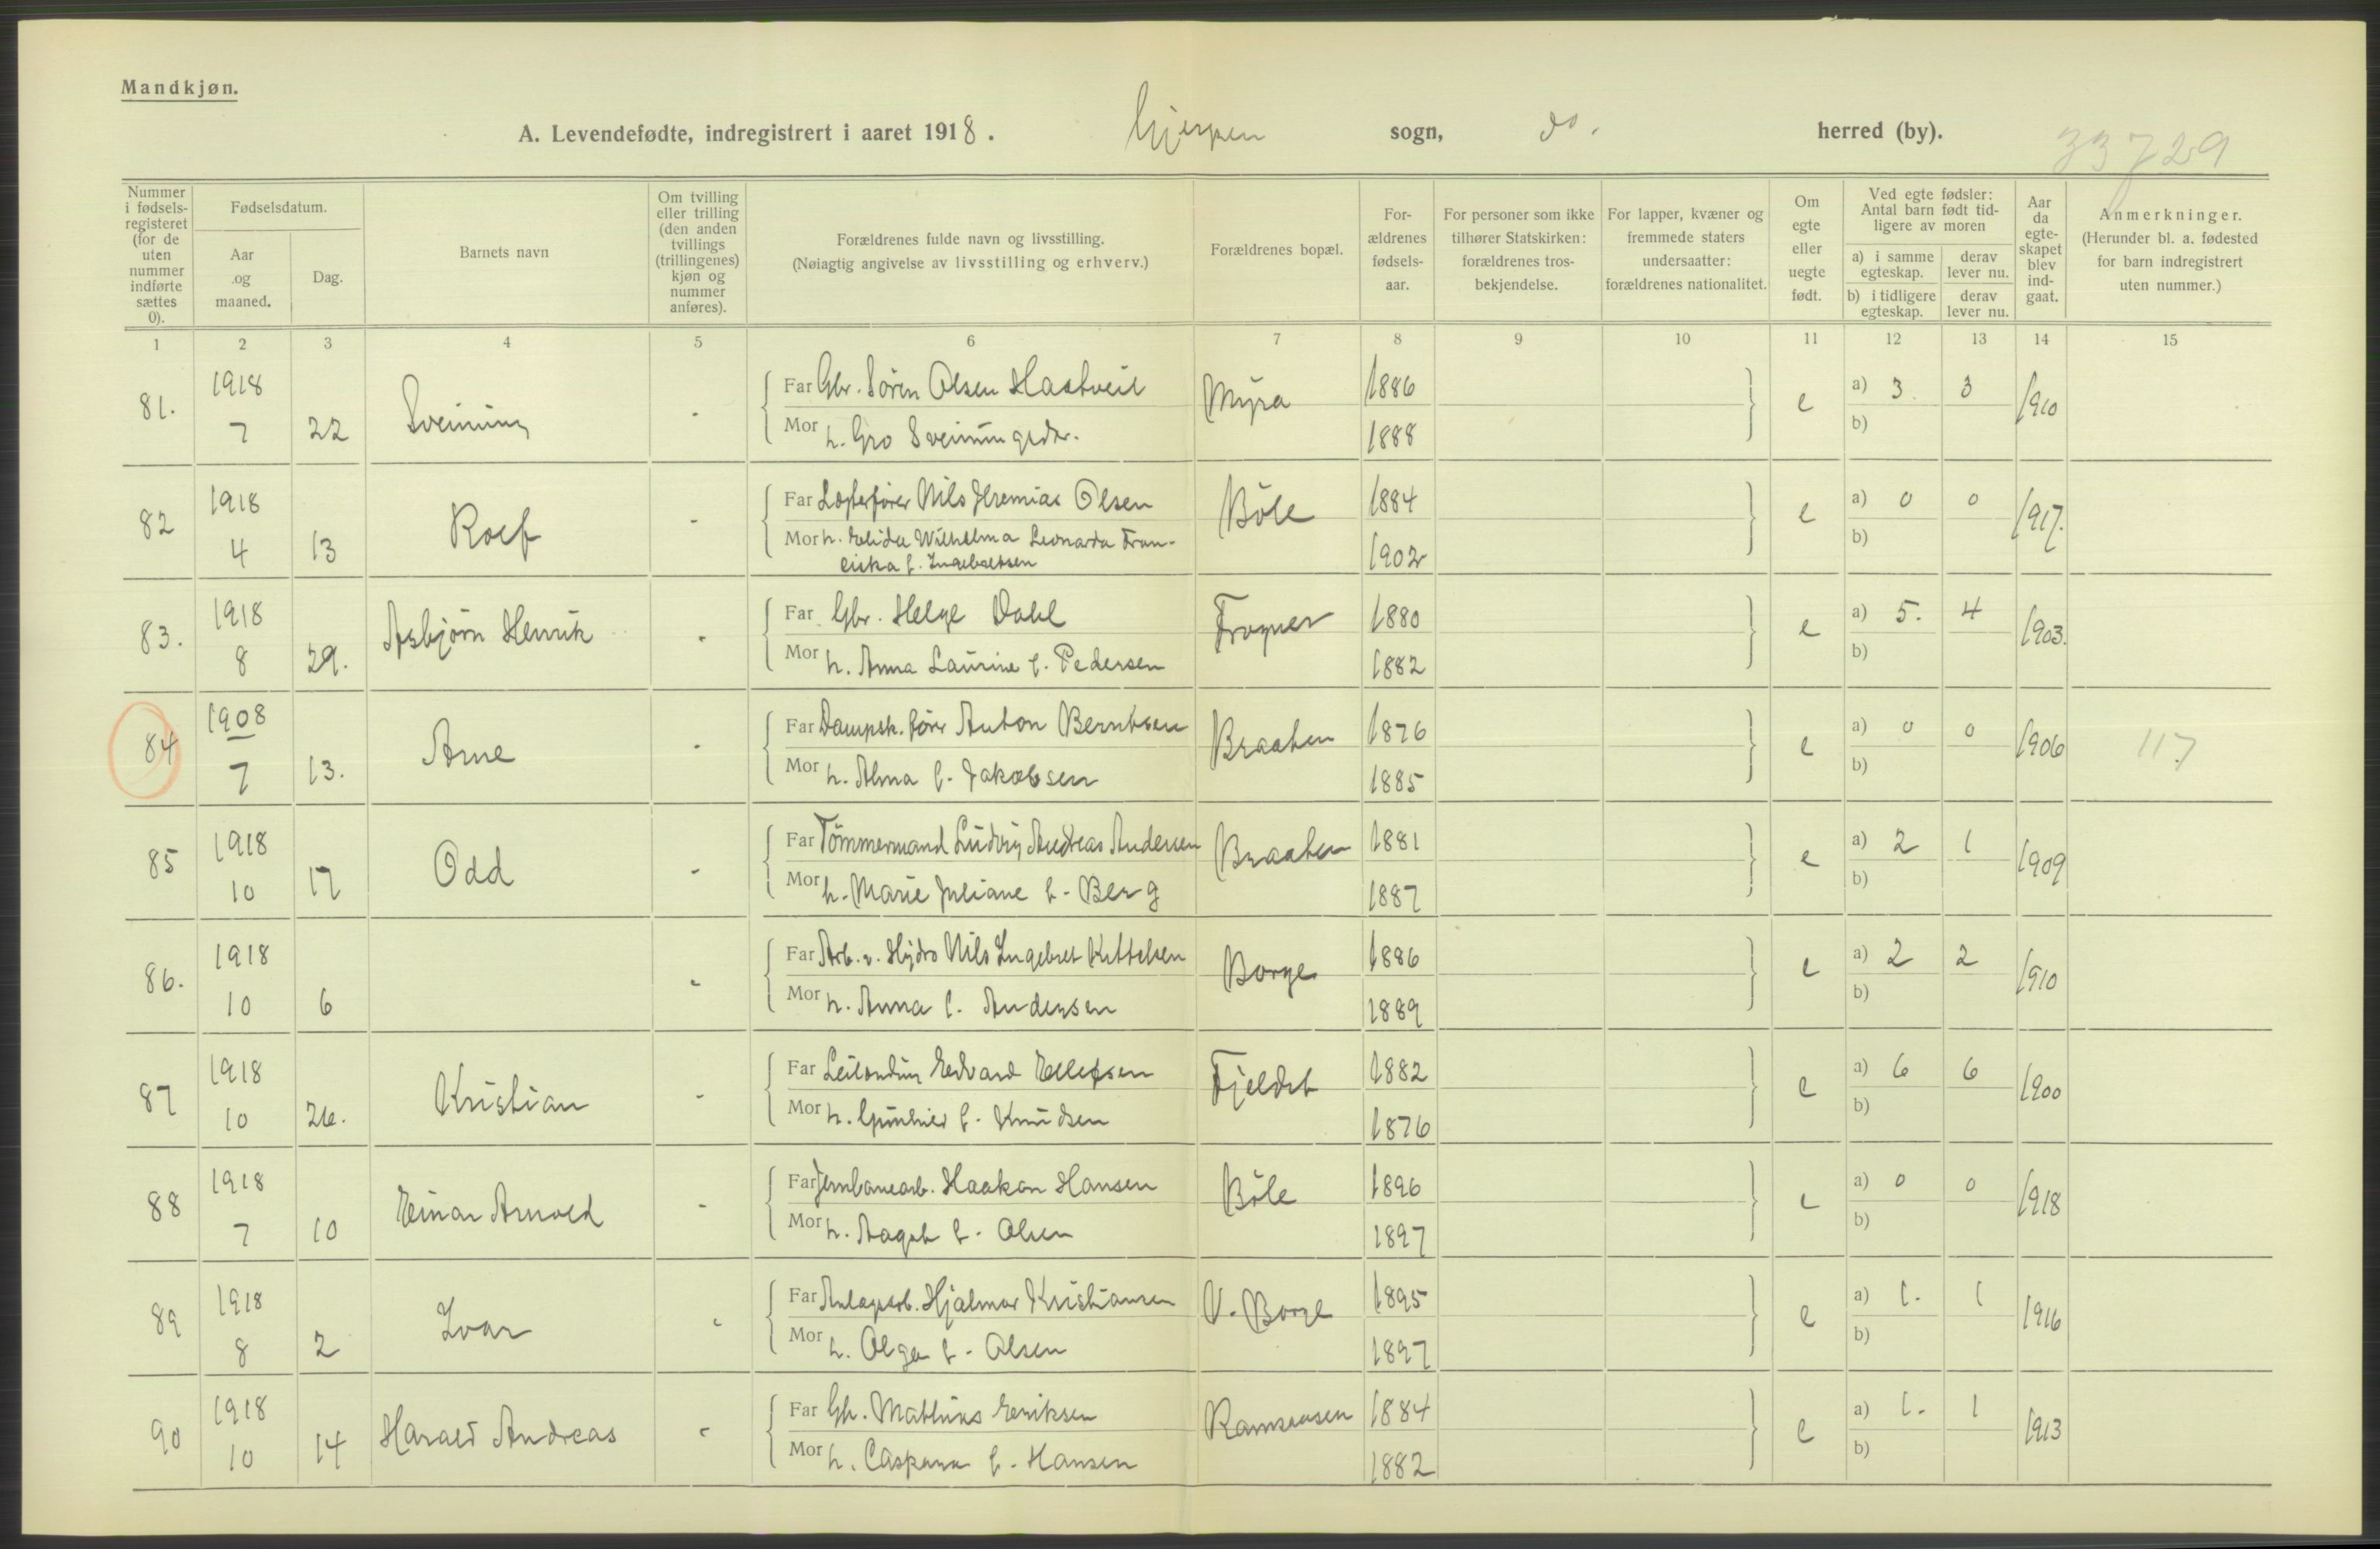 Mandkjøn.
A. Levendefødte, indregistrert i aaret 1918. Gjerpen sogn, do. herred (by).
33729
Nummer i fødselsregisteret (for de uten nummer indførte sættes 0).
Fødselsdatum.
Aar og maaned.
Dag.
Barnets navn
Om tvilling eller trilling (den anden tvillings (trillingenes) kjøn og nummer anføres).
Forældrenes fulde navn og livsstilling.
(Nøiagtig angivelse av livsstilling og erhverv.)
Forældrenes bopæl.
Forældrenes fødselsaar.
For personer som ikke tilhører Statskirken: forældrenes trosbekjendelse.
For lapper, kvæner og fremmede staters undersaatter: forældrenes nationalitet.
Om egte eller uegte født.
Ved egte fødsler: Antal barn født tidligere av moren
a) i samme egteskap.
derav lever nu.
b) i tidligere egteskap.
derav lever nu.
Aar da egteskapet blev indgaat.
Anmerkninger.
(Herunder bl. a. fødested for barn indregistrert uten nummer.)
1 2 3 4 5 6 7 8 9 10 11 12 13 14 15
81. 1918 7 22 Sveinung - Far Gbr. Sören Olsen Hastveit Myra 1886 e a) 3 3 1910
Mor h. Gro Sveinungsdr. 1888 b)
82 1918 4 13 Rolf - Far Nils Jeremias Olsen Böle 1884 e a) 0 0 1917.
Mor h. Wilhelma Leonarda Fran-
ciska f. Ingebretsen 1902 b)
83. 1918 8 29. Asbjörn Henrik - Far Gbr. Helge Dahl Frogner 1880 e a) 5. 4 1903.
Mor h. Anna Laurine f. Pedersen 1882 b)
84 1908 7 13. Arne - Far Dampsk. förer Anton Berntsen Braaten 1876 e a) 0 0 1906 117
Mor h. Alma f. Jakobsen 1885 b)
85 1918 10 17 Odd - Far Tömmermand Ludvig Andreas Andersen Braaten 1881 e a) 2 1 1909
Mor h. Marie Juliane f. Berg 1887 b)
86. 1918 10 6 - Far Arb. v. Hydro Nils Ingebret Kittelsen Borge 1886 e a) 2 2 1910
Mor h. Anna f. Andersen 1889 b)
87 1918 10 26. Kristian - Far Leilænding Edvard Ellefsen Fjeldet 1882 e a) 6 6 1900
Mor h. f. Knudsen 1876 b)
88 1918 7 10 Einar Arnold - Far Jernbanearb. Haakon Hansen Böle 1896 e a) 0 0 1918
Mor h. Aagot f. Olsen 1897 b)
89 1918 8 2 Ivar - Far Anlægsarb. Hjalmar Kristiansen V. Borge 1895 e a) 1. 1 1916
Mor h. Olga f. Olsen 1897 b)
90 1918 10 14 Harald Andreas - Far Gbr. Mathias Eriksen 1884 e a) 1. 1 1913
Mor h. f. Hansen 1882 b)